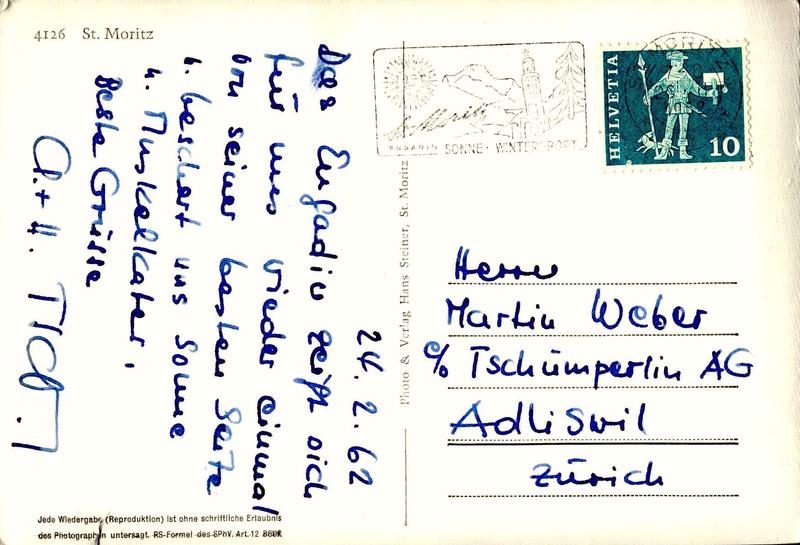 4126 St. Moritz
24. 2. 62
Das Engadin zeigt sich
für uns wieder einmal
von seiner besten Seite
u. beschert uns Sonne
u. Muskelkater.
Beste Grüsse
Jede Wiedergabe (Reproduktion) ist ohne schriftliche Erlaubnis
des Photographen untersagt. RS-Formel des SPhV. Art. 12
Photo & Verlag Hans Steiner, St. Moritz
St. Moritz
ENGADIN SONNE · WINTERSPORT
HELVETIA
10
Herrn
Martin Weber
c/o Tschümperlin AG
Adliswil
Zürich